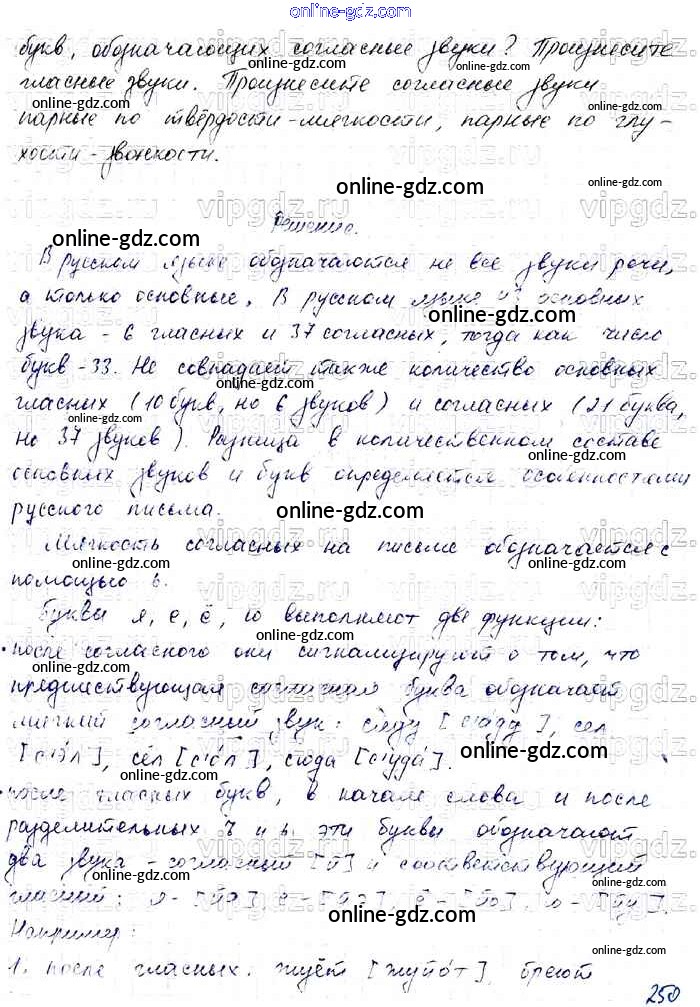 online-gdz.com
букв, обозначающих согласные звуки? Произнесите
гласные звуки. Произнесите согласные звуки
парные по твёрдости-мягкости, парные по глу-
хости-звонкости.
Решение.
В русском языке обозначаются не все звуки речи,
а только основные. В русском языке 43 основных
звука - 6 гласных и 37 согласных, тогда как число
букв -33. Не совпадает также количество основных
гласных (10 букв, но 6 звуков) и согласных (21 буква,
но 37 звуков). Разница в количественном составе
основных звуков и букв определяется особенностями
русского письма.
Мягкость согласных на письме обозначается с
помощью ь.
Буквы я, е, ё, ю выполняют две функции:
• после согласного они сигнализируют о том, что
предшествующая согласная буква обозначает
мягкий согласный звук: сяду [с'аду], сел
[с'эл], сёл [с'ол], сюда [с'уда́].
• после гласных букв, в начале слова и после
разделительных ъ и ь эти буквы обозначают
два звука - согласный [й] и соответствующий
гласный: я - [йа], е - [йэ], ё - [йо], ю - [йу].
Например:
1. после гласных: жуёт [жуйо́т], бреют
250